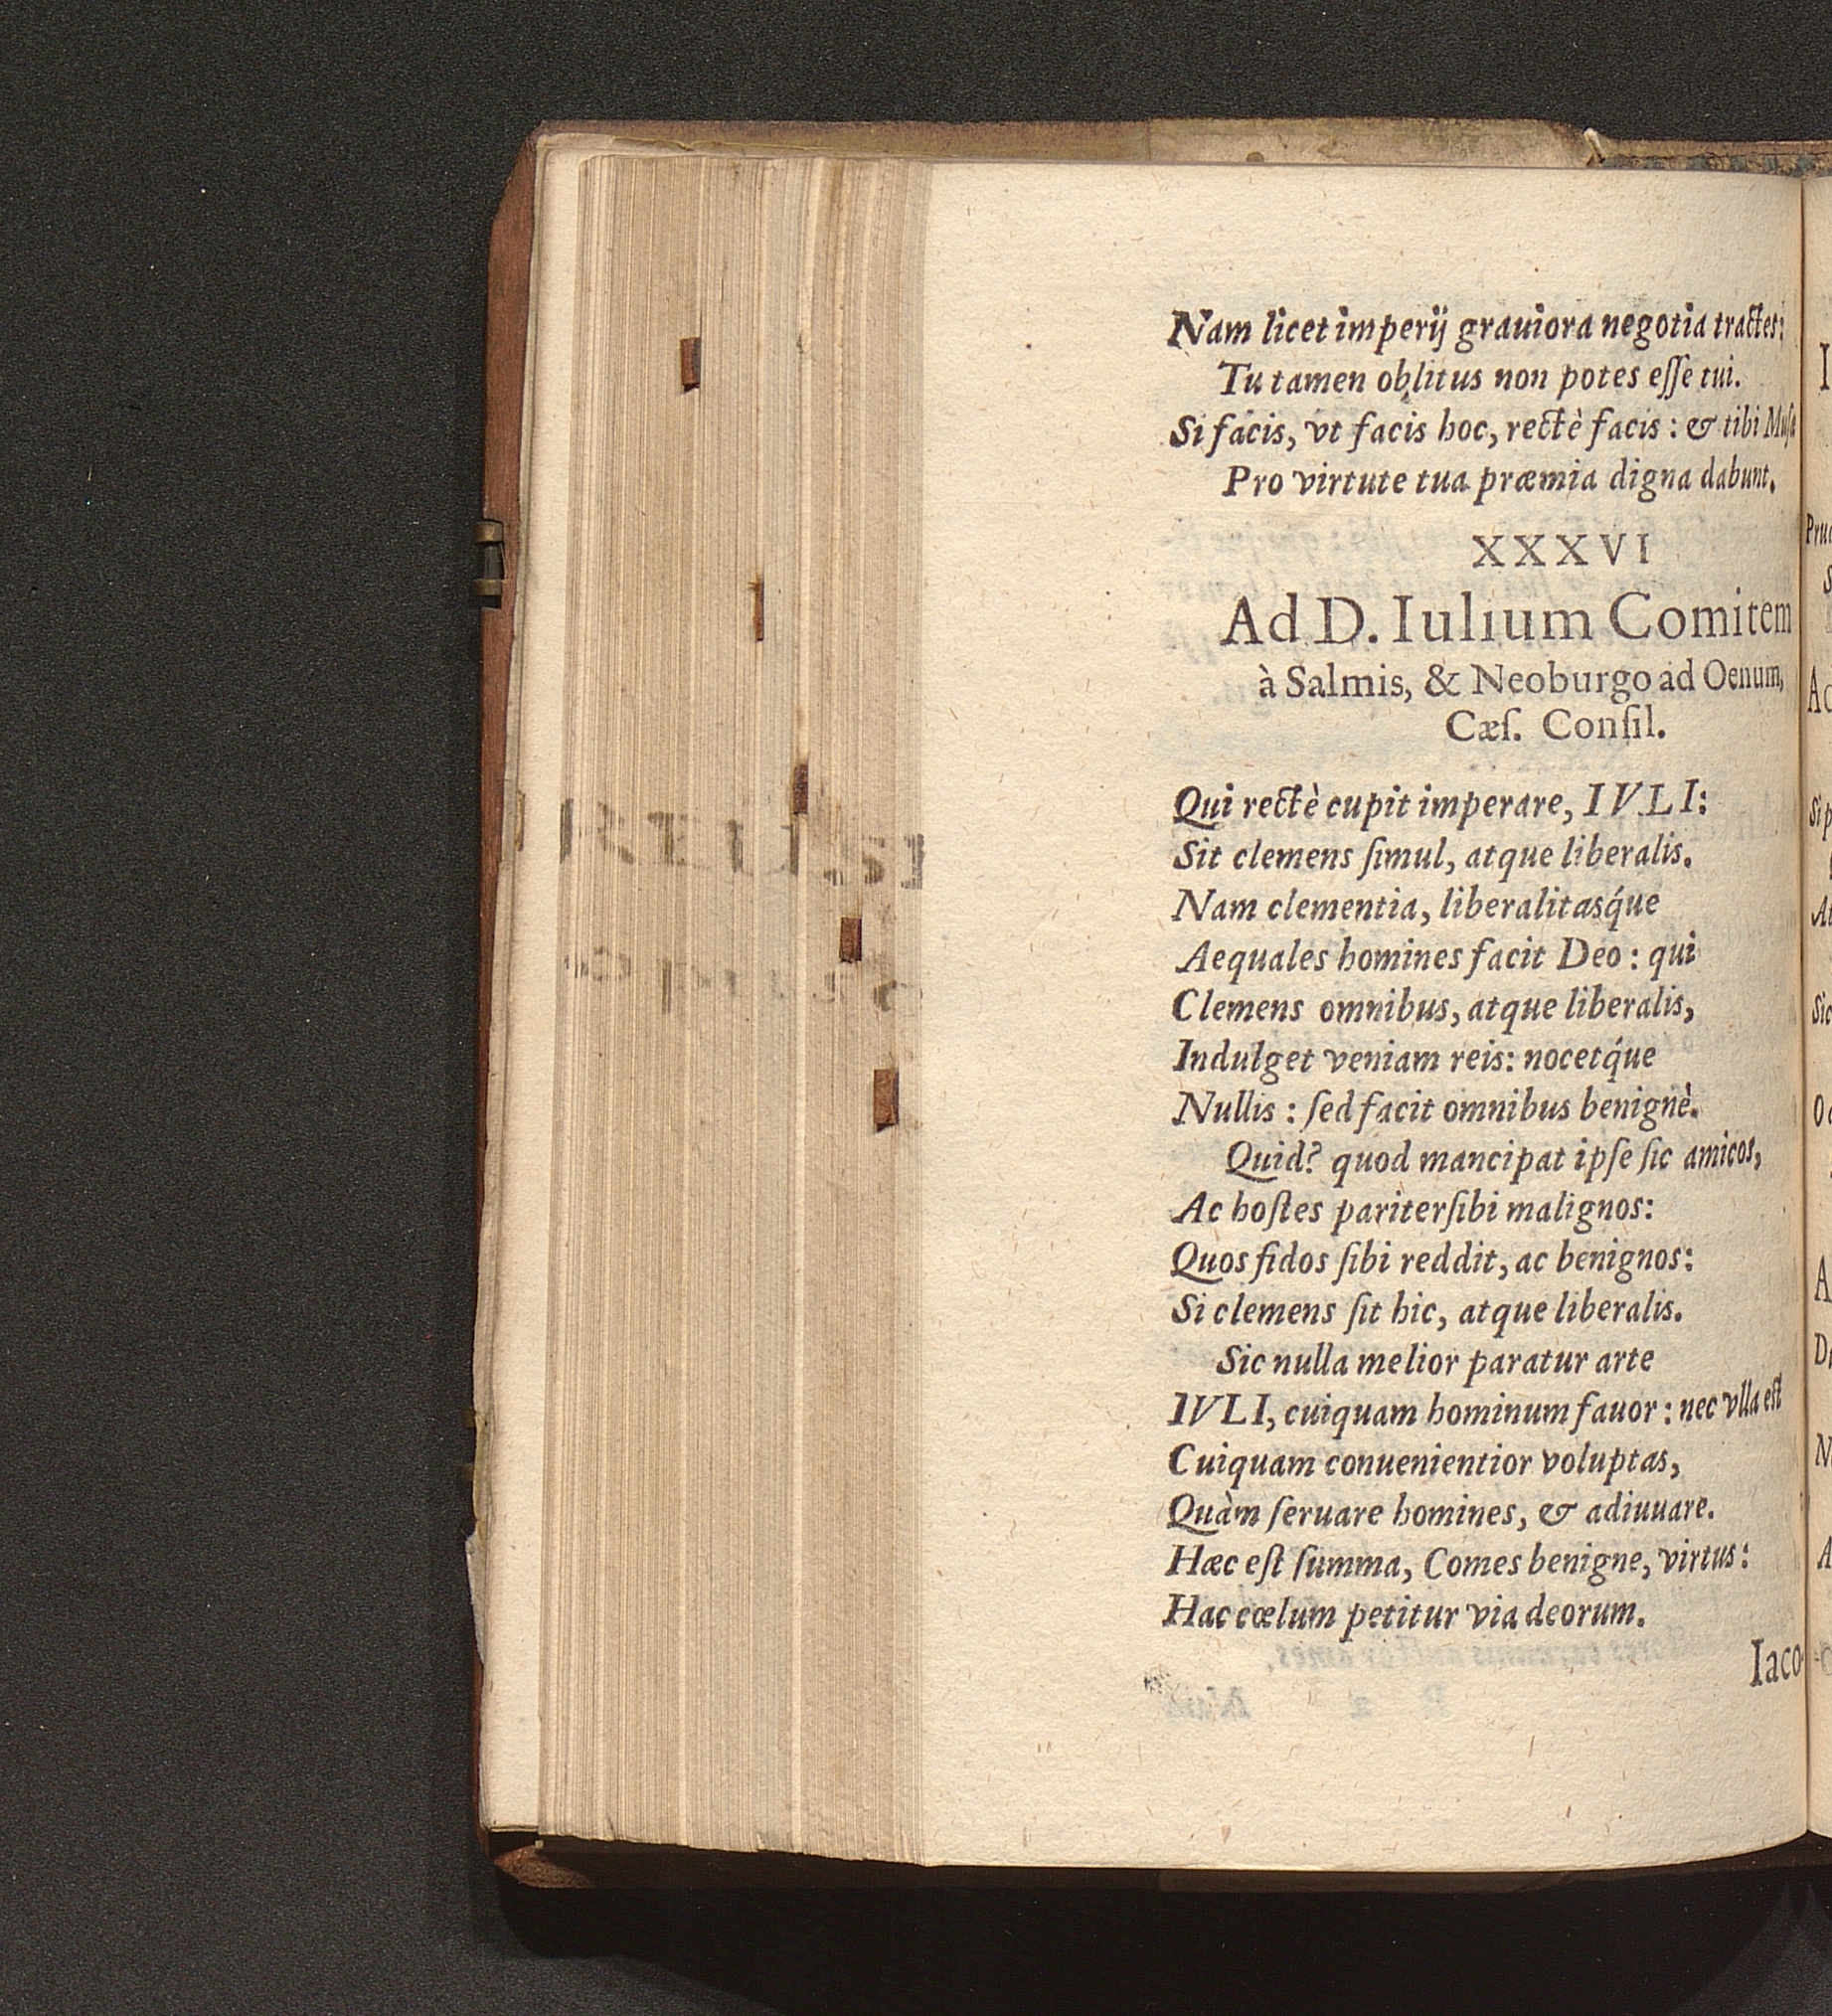 Nam licet imperij grauiora negotia tractes:
Tu tamen oblitus non potes eſſe tui.
Si facis, vt facis hoc, rectè facis: & tibi Muſæ
Pro virtute tua præmia digna dabunt.
XXXVI
Ad D. Iulium Comitem
à Salmis, & Neoburgo ad Oenum,
Cæſ. Conſil.
Qui rectè cupit imperare, IVLI:
Sit clemens ſimul, atque liberalis.
Nam clementia, liberalitasq́ue
Aequales homines facit Deo: qui
Clemens omnibus, atque liberalis,
Indulget veniam reis: nocetq́ue
Nullis: ſed facit omnibus benignè.
Quid? quod mancipat ipſe ſic amicos,
Ac hoſtes pariter ſibi malignos:
Quos fidos ſibi reddit, ac benignos:
Si clemens ſit hic, atque liberalis.
Sic nulla melior paratur arte
IVLI, cuiquam hominum fauor: nec vlla eſt
Cuiquam conuenientior voluptas,
Quàm ſeruare homines, & adiuuare.
Hæc eſt ſumma, Comes benigne, virtus:
Hac cœlum petitur via deorum.
Iaco-